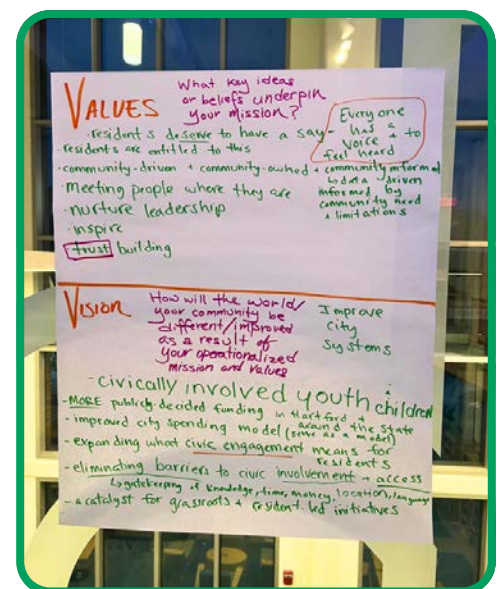 VALUES
What key ideas
or beliefs underpin
your mission?
Everyone
has a
voice + to
feel heard
· resident s deserve to have a say
· residents are entitled to this
· community-driven + community-owned + community informed
↳ data driven
informed by
community need
+ limitations
· Meeting people where they are
· nurture leadership
· inspire
trust building
VISION
How will the world/
your community be
different/improved
as a result of
your operationalized
mission and values
Improve
city
systems
- civically involved youth + children
- MORE publicly-decided funding in Hartford + around the state
- improved city spending model (serve as a model)
- expanding what civic engagement means for residents
- eliminating barriers to civic involvement + access
↳ gatekeeping of knowledge, time, money, location, language
- a catalyst for grassroots + resident-led initiatives